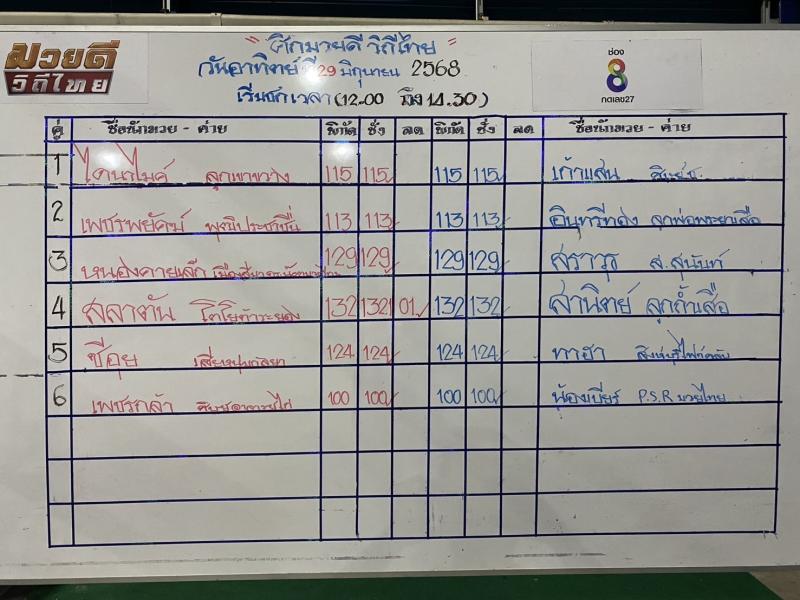 มวยดี
วิถีไทย
"ศึกมวยดี วิถีไทย"
วันอาทิตย์ที่ 29 มิถุนายน 2568
เริ่มชกเวลา (12.00 ถึง 14.30)
ช่อง
8
กดเลข27
คู่ ชื่อนักมวย - ค่าย พิกัด ชั่ง ลด พิกัด ชั่ง ลด ชื่อนักมวย - ค่าย
1 ไดนาไมค์ ลูกเขาขวาง 115 115 115 115 เก้าแสน
2 เพชรพยัคฆ์ พุฒิประชาชื่น 113 113 113 113 อินทรีทอง ลูกพ่อพระยาเสือ
3 หนองคายเล็ก 129 129 129 129 สราวุธ ส.สุนันท์
4 สลาตัน 132 132 01 132 132 สานิตย์ ลูกถ้ำเสือ
5 ซีอุย 124 124 124 124 ทาฮา สิงห์บุรีไฟท์คลับ
6 เพชรกล้า 100 100 100 100 น้องเบียร์ P.S.R มวยไทย